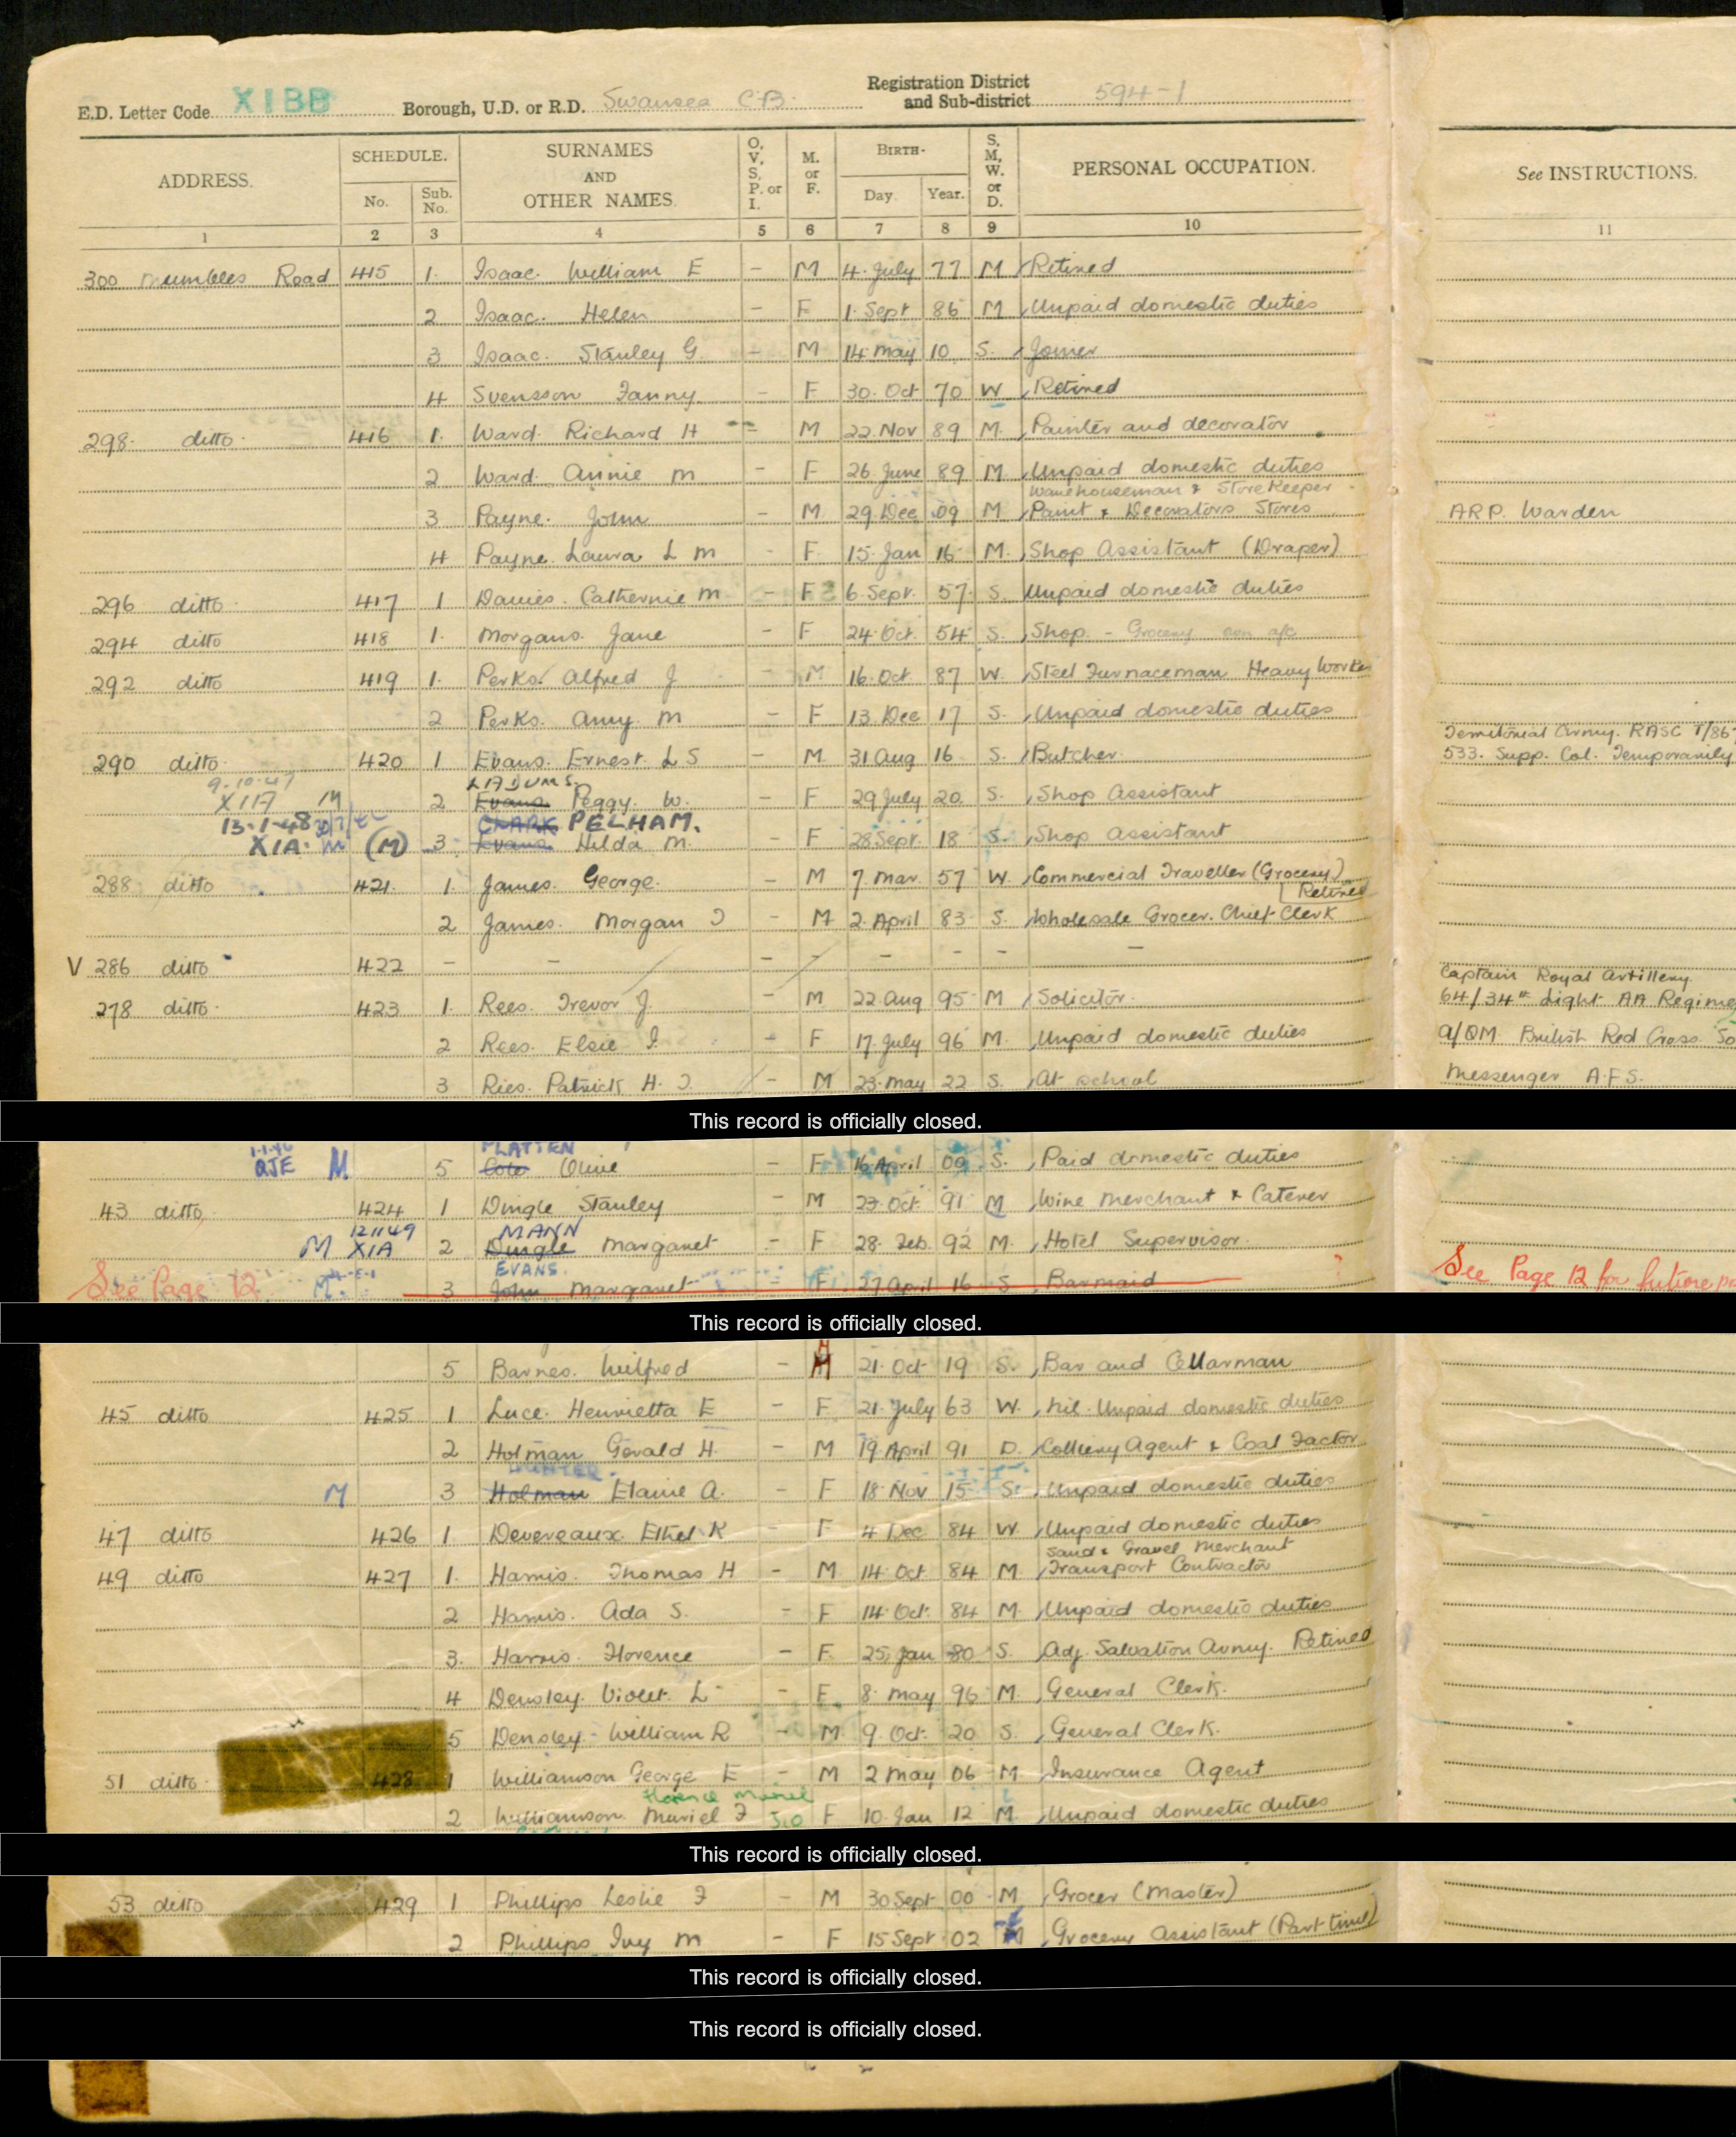 E.D. Letter Code XIBB Borough, U.D. or R.D. Swansea C.B. Registration District and Sub-district 594-1
ADDRESS. SCHEDULE. No. Sub. No. SURNAMES AND OTHER NAMES. O, V, S, P. or I. M. or F. BIRTH- Day. Year. S, M, W. or D. PERSONAL OCCUPATION. See INSTRUCTIONS.
1 2 3 4 5 6 7 8 9 10 11
300 Mumbles Road 415 1. Isaac. William E - M 4. July 77 M Retired
2 Isaac. Helen - F 1. Sept 86 M Unpaid domestic duties
3 Isaac. Stanley G. - M 14 May 10 S. Joiner
4 Svensson Fanny - F 30. Oct 70 W Retired
298. ditto. 416 1. Ward. Richard H - M 22. Nov 89 M. Painter and decorator
2 Ward. Annie M - F 26. June 89 M. Unpaid domestic duties
Warehouseman & StoreKeeper
3 Payne. John - M 29. Dec 09 M Paint & Decorators Stores ARP. Warden
4 Payne. Laura L M - F. 15. Jan 16 M. Shop Assistant (Draper)
296 ditto. 417 1 Davies. Catherine M - F 6. Sept. 57 S. Unpaid domestic duties
294 ditto 418 1. Morgans. Jane - F 24. Oct. 54 S. Shop - Grocery own a/c
292 ditto 419 1. Perks. Alfred J - M 16. Oct 87 W. Steel Furnaceman Heavy Worker
2 Perks. Amy. M - F 13. Dec 17 S. Unpaid domestic duties
Territorial Army. RASC T/86
290 ditto. 420 1 Evans. Ernest. L S - M 31 Aug 16 S. Butcher. 533. Supp. Col. Temporarily
9.10.47 LADUMS.
XIIA M 2 Evans Peggy. W. - F 29 July 20. S. Shop Assistant
13.1.48 CLARK PELHAM.
XIA. M (M) 3 Evans Hilda M. - F 28 Sept. 18 S. Shop Assistant
288 ditto. 421. 1. James. George. - M 7 Mar. 57 W. Commercial Traveller (Grocery)
Retired
2 James. Morgan J - M 2. April 83 S. Wholesale Grocer. Chief Clerk
V 286 ditto 422 - - - - - - - -
Captain Royal Artillery.
278 ditto. 423 1. Rees. Trevor J. - M 22 Aug 95 M Solicitor. 64/34th Light AA Regime
2 Rees. Elsie I. - F 17. July 96 M. Unpaid domestic duties Q/QM British Red Cross. So
3 Rees. Patrick H. J. - M 23. May 22 S. At school Messenger A.F.S.
This record is officially closed.
1.1.46 PLATTEN
QJE M. 5 Cole Olive - F 16 April 09 S. Paid domestic duties
43 ditto. 424 1 Dingle Stanley - M 23 Oct. 91 M Wine Merchant & Caterer
121149 MANN
M XIA 2 Dingle Margaret - F 28. Feb. 92 M. Hotel Supervisor.
EVANS.
See Page 12 M. 3 John Margaret - F 27 April 16 S Barmaid See Page 12 for future
This record is officially closed.
5 Barnes. Wilfred - M 21. Oct 19 S. Bar and Cellarman
45 ditto 425 1 Luce. Henrietta E - F 21. July 63 W. Nil. Unpaid domestic duties
2 Holman Gerald H. - M 19. April 91 D. Colliery Agent & Coal Factor
HUNTER.
M 3 Holman Elaine A. - F 18. Nov 15 S. Unpaid domestic duties
47 ditto 426 1. Devereaux. Ethel K - F 4 Dec 84 W Unpaid domestic duties
Sand & Gravel Merchant
49 ditto 427 1. Harris. Thomas H - M 14. Oct 84 M. Transport Contractor
2 Harris. Ada S. - F 14. Oct. 84 M. Unpaid domestic duties
3. Harris. Florence - F. 25. Jan 80 S. Adj. Salvation Army. Retired
4 Densley. Violet. L - F 8. May 96 M. General Clerk.
5 Densley - William R - M 9. Oct. 20 S. General Clerk.
51 ditto. 428 1 Williamson George E - M 2 May 06 M Insurance Agent
Florence Muriel
2 Williamson. Muriel F - F 10. Jan 12 M. Unpaid domestic duties
This record is officially closed.
53 ditto 429 1 Phillips Leslie F - M 30 Sept 00 M Grocer (Master)
2 Phillips Ivy M - F 15 Sept 02 M Grocery Assistant (Part time)
This record is officially closed.
This record is officially closed.